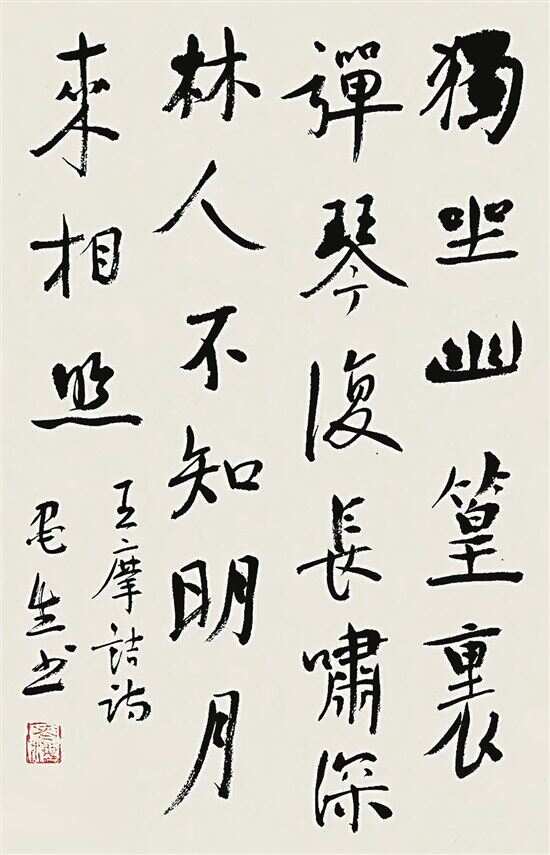 獨坐幽篁裏
彈琴復長嘯深
林人不知明月
來相照
王摩詰詩
墨生书